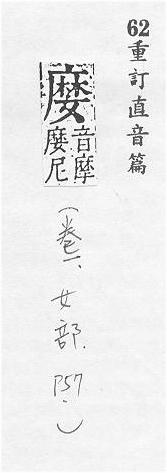 62重訂直音篇
音摩
尼
(卷一、女部. P57.)